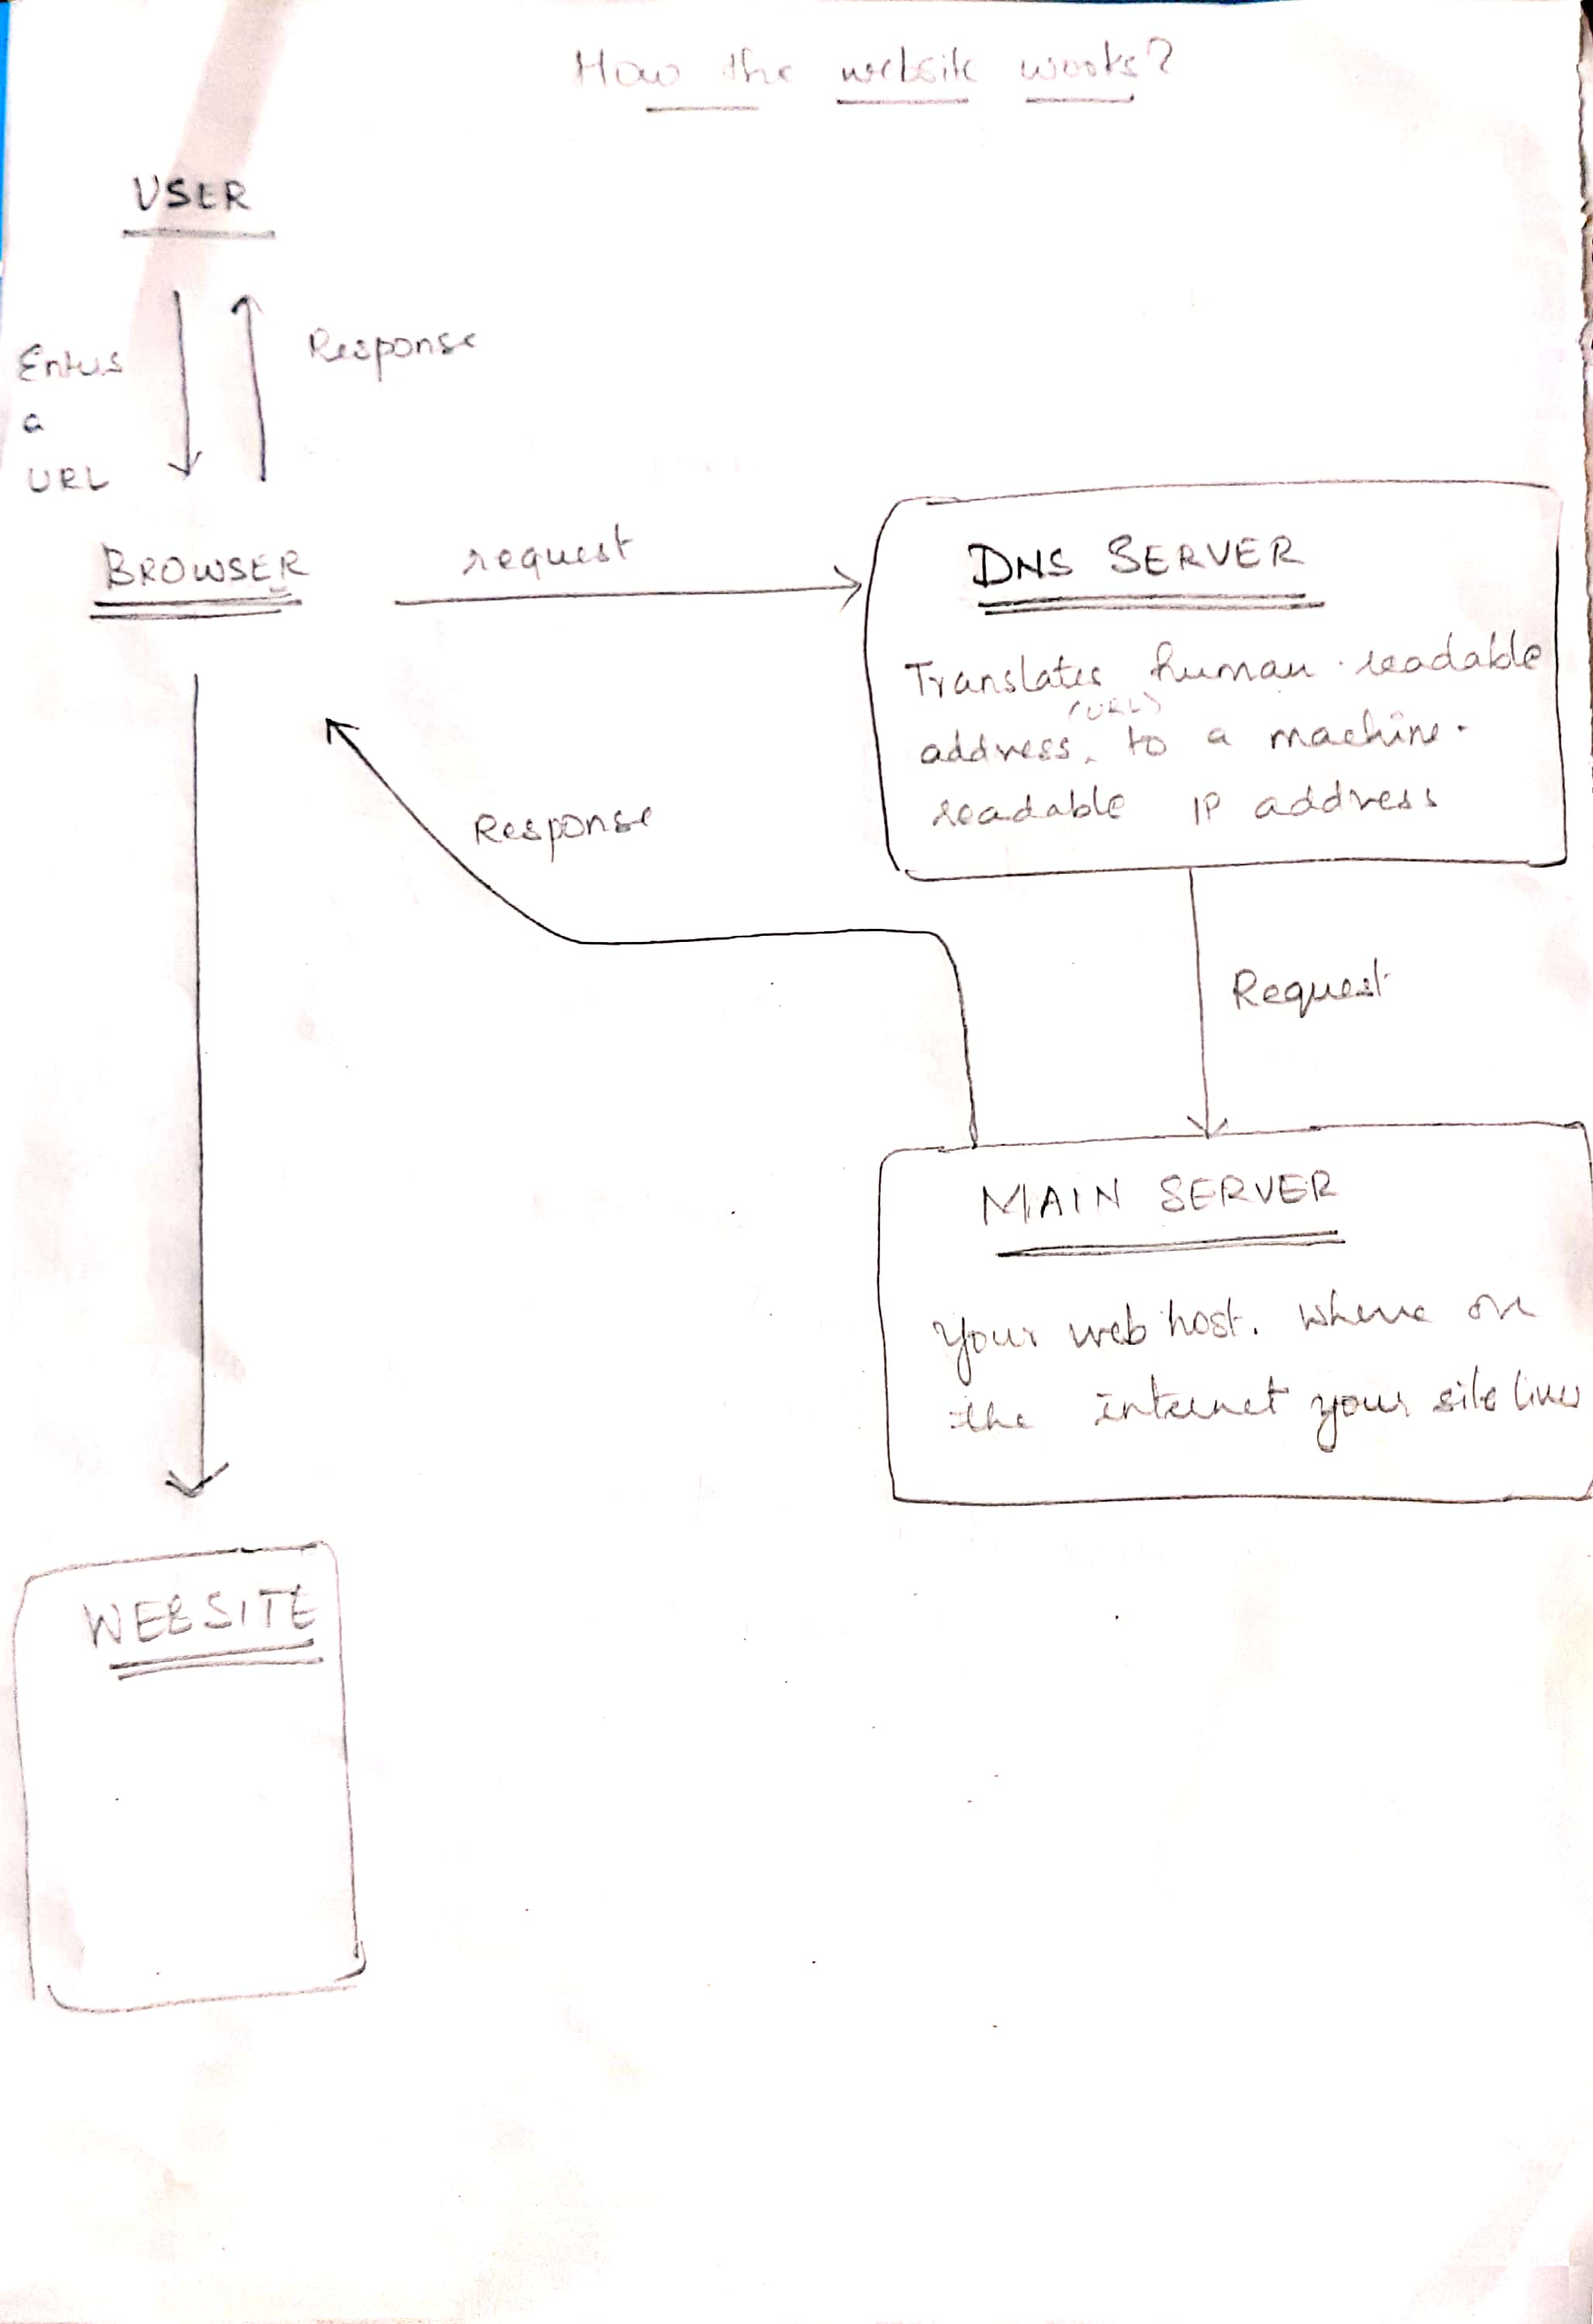 How the website works?
USER
Enters
a
URL
Response
BROWSER
request
DNS SERVER
Translates human-readable
address (URL) to a machine-
readable IP address
Response
Request
MAIN SERVER
Your web host. Where on
the internet your site lives
WEBSITE